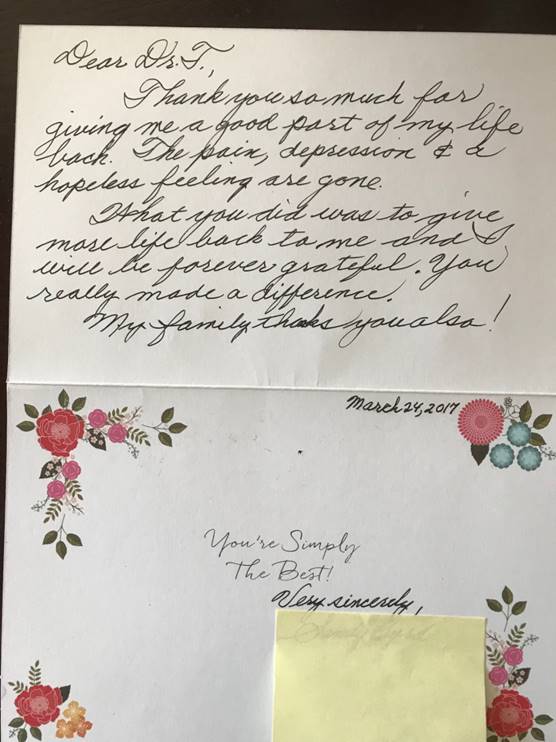 Dear Dr. T.,
Thank you so much for
giving me a good part of my life
back. The pain, depression & a
hopeless feeling are gone.
What you did was to give
more life back to me and I
will be forever grateful. You
really made a difference.
My family thanks you also!
March 24, 2017
You're Simply
The Best!
Very sincerely,